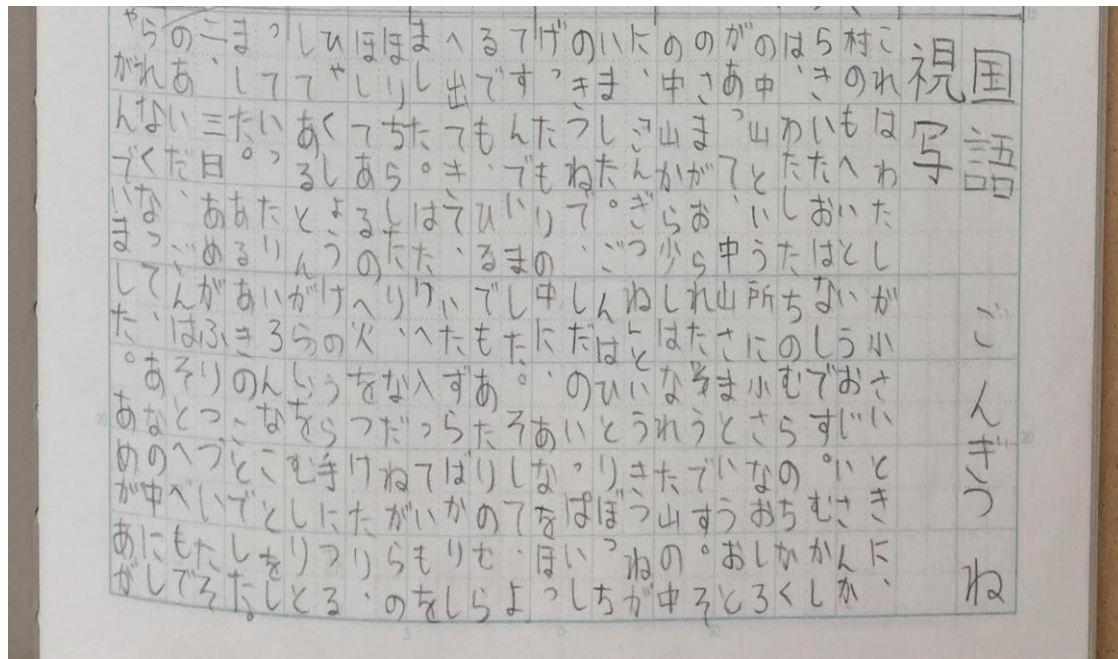 国語　ごんぎつね
視写
これはわたしが小さいときに、
村のもへいというおじいさんか
らきいたおはなしです。むかし
は、わたしたちのむらのちかく
の中山という所に小さなおしろ
があって、中山さまというおと
のさまがおられたそうです。そ
の中山から少しはなれた山の中
に、ごんぎつねというきつねが
いました。ごんはひとりぼっち
のきつねで、しだのいっぱいし
げったもりの中にあなをほっ
てすんでいました。そして、よ
るでもひるでも、あたりのむら
へ出てきて、いたずらばかりし
ました。はたけへ入っていもを
ほりちらしたり、なたねがらの
ほしてあるのへ火をつけたり、
ひゃくしょうけのうら手につる
してあるとんがらしをむしりと
っていったり、いろんなことをし
ました。あるあきのことでした。
二、三日あめがふりつづいたそ
のあいだ、ごんは、そとへもで
られなくてあなの中にし
ゃがんでいました。あめがあが